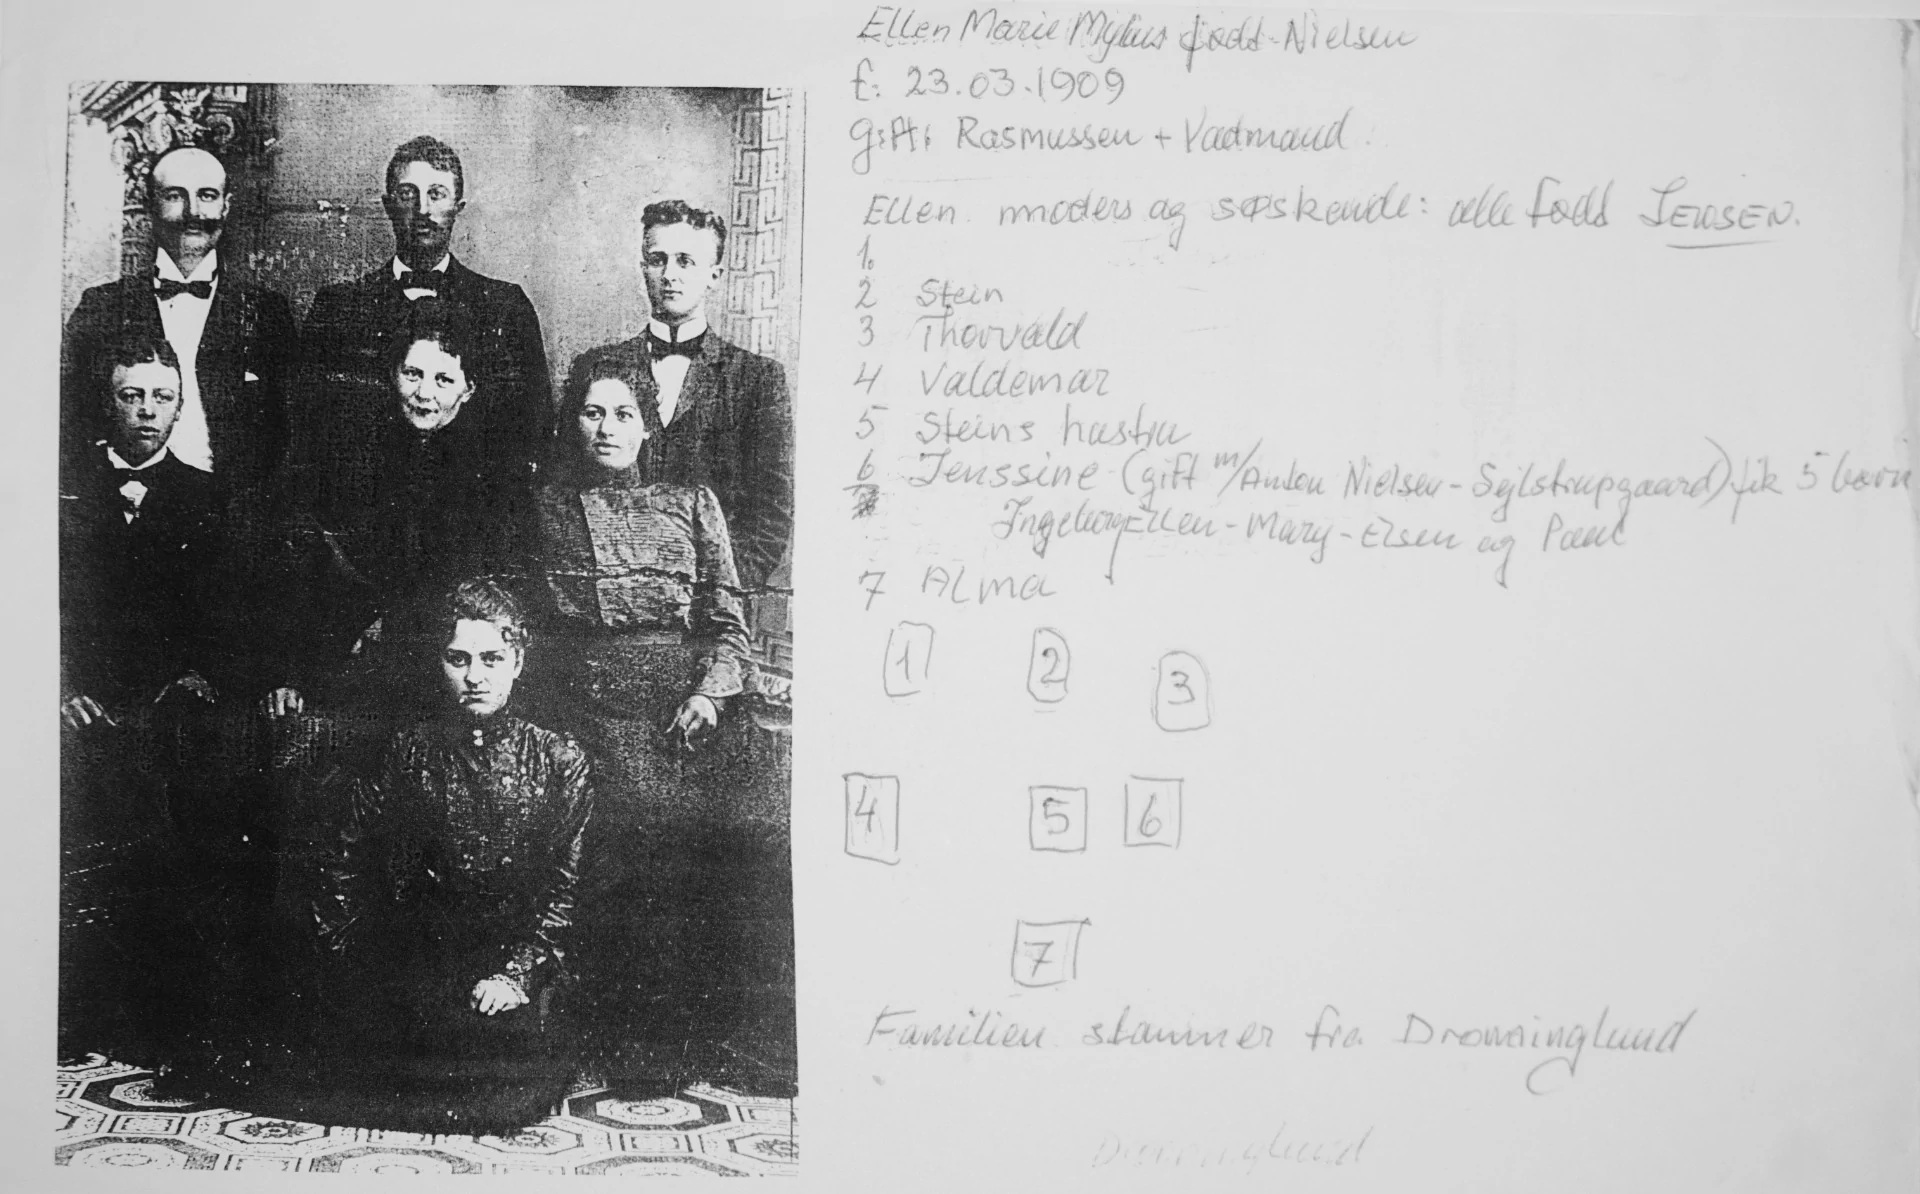 Ellen Marie Mylius født Nielsen
f: 23.03.1909
gift: Rasmussen + Vadmand.
Ellen moders og søskende: alle født JENSEN.
1.
2 Stein
3 Thorvald
4 Valdemar
5 Steins hustru
6 Jenssine (gift m/Anton Nielsen - Sejlstrupgaard) fik 5 børn
Ingeborg Ellen - Mary - Elsen og Paul
7 Alma
1 2 3
4 5 6
7
Familien stammer fra Dronninglund
Dronninglund